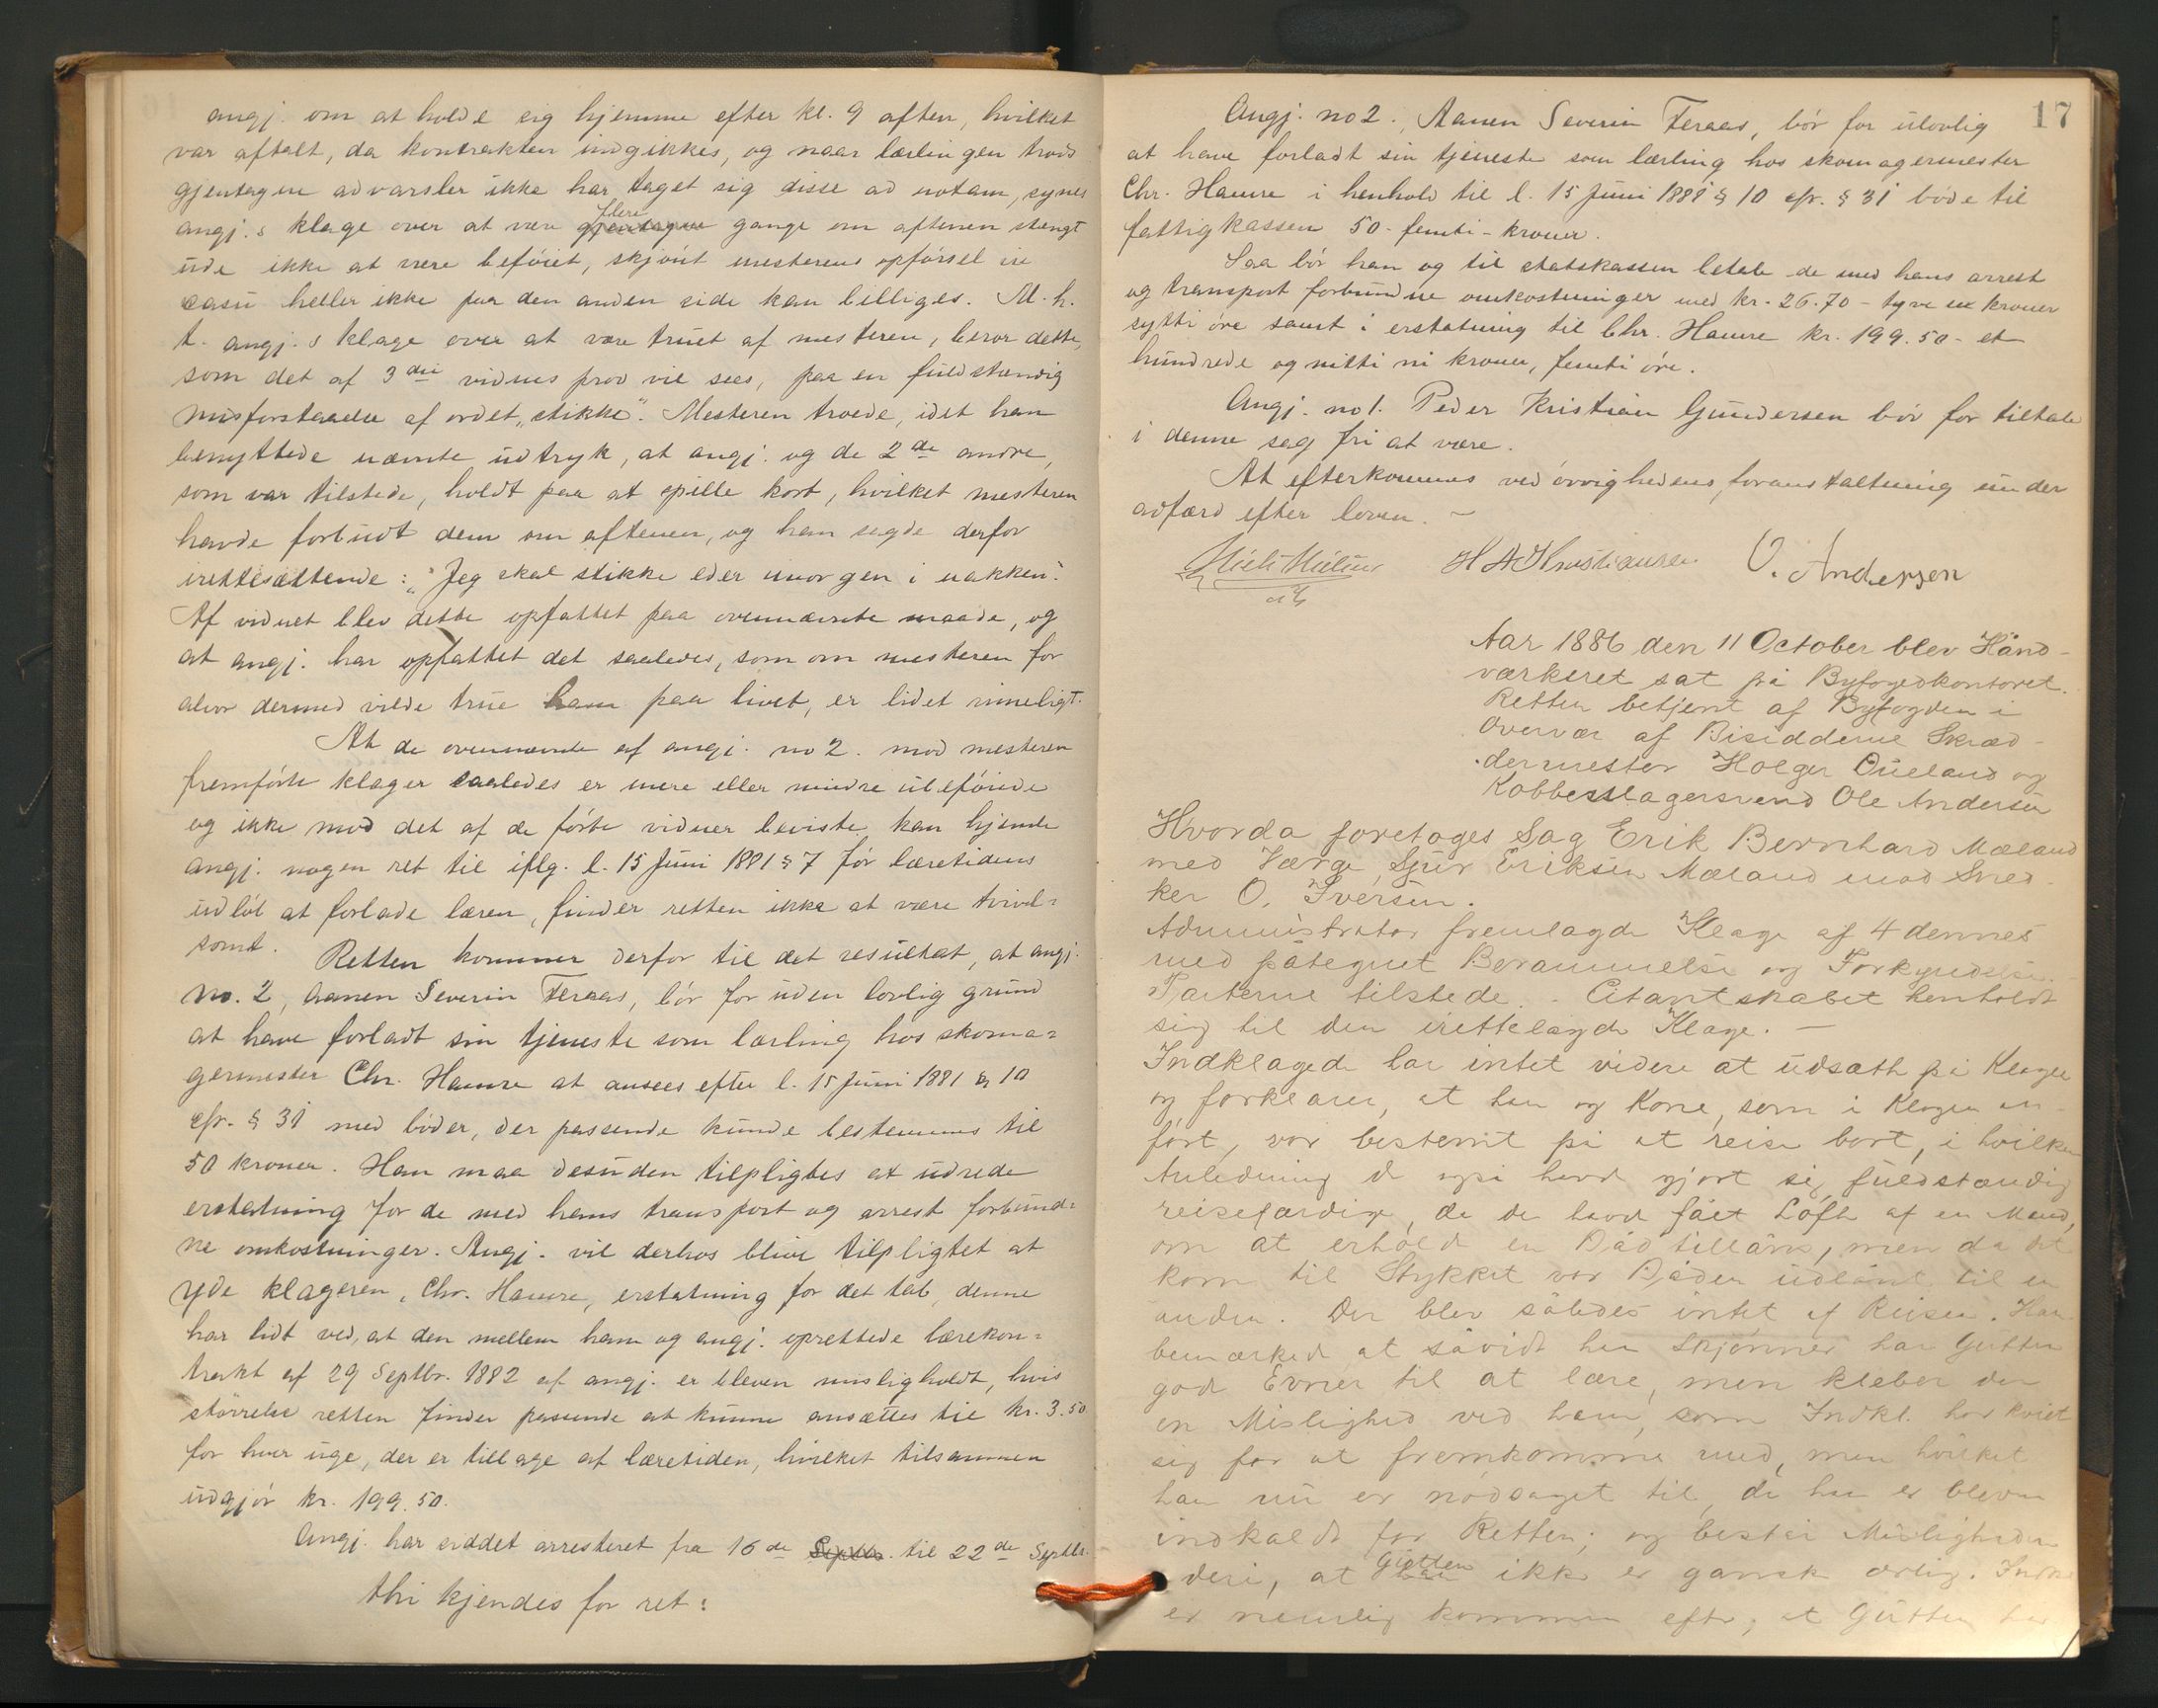 angj. om at holde sig hjemme efter kl. 9 aften, hvilket
var aftalt, da kontrakten indgikkes, og naar lærlingen trods
gjentagne advarsler ikke har taget sig disse ad notam, synes
angj.s klage over at være gjentagne flere gange om aftenen stængt
ude ikke at være beføiet, skjønt mesterens opførsel in
casu heller ikke paa den anden side kan billiges. M. h.
t. angj.s klage over at være truet af mesteren, beror dette,
som det af 3die vidnes prov vil sees, paa en fuldstændig
misforstaaelse af ordet „stikke". Mesteren troede, idet han
benyttede nævnte udtryk, at angj. og de 2de andre,
som var tilstede, holdt paa at spille kort, hvilket mesteren
havde forbudt dem om aftenen, og han sagde derfor
irettesættende: „Jeg skal stikke eder imorgen i nakken".
Af vidnet blev dette opfattet paa ovennævnte maade, og
at angj. har opfattet det saaledes, som om mesteren for
alvor dermed vilde true ham paa livet, er lidet rimeligt.
At de ovennævnte af angj. no 2. mod mesteren
fremførte klager saaledes er mere eller mindre ubeføiede
og ikke mod det af de førte vidner beviste kan hjemle
angj. nogen ret til iflg. l. 15 Juni 1881 § 7 før læretidens
udløb at forlade læren, finder retten ikke at være tvivl=
somt. Retten kommer derfor til det resultat, at angj.
no. 2, Aanen Severin Feraas, bør for uden lovlig grund
at have forladt sin tjeneste som lærling hos skoma=
germester Chr. Hamre at ansees efter l. 15 Juni 1881 § 10
cfr. § 31 med bøder, der passende kunde bestemmes til
50 kroner. Han maa desuden tilpligtes at udrede
erstatning for de med hans transport og arrest forbund=
ne omkostninger. Angj. vil derhos blive tilpligtet at
yde klageren, Chr. Hamre, erstatning for det tab, denne
har lidt ved, at den mellem ham og angj. oprettede lærekon=
trakt af 29 Septbr. 1882 af angj. er bleven misligholdt, hvis
størrelse retten finder passende at kunne ansættes til kr. 3.50
for hver uge, der er tilbage af læretiden, hvilket tilsammen
udgjør kr. 199.50.
Angj. har siddet arresteret fra 16de Septbr. til 22de Septbr.
thi kjendes for ret:
17
Angj. no 2., Aanen Severin Feraas, bør for ulovlig
at have forladt sin tjeneste som lærling hos skomagermester
Chr. Hamre i henhold til l. 15 Juni 1881 § 10 cfr. § 31 bøde til
fattigkassen 50 - femti - kroner.
Saa bør han og til statskassen betale de med hans arrest
og transport forbundne omkostninger med kr. 26.70 - tyve kroner
sytti øre samt i erstatning til Chr. Hamre kr. 199.50 - et
hundrede og nitti ni kroner, femti øre.
Angj. no 1. Peder Kristian Gundersen bør for tiltale
i denne sag fri at være.
At efterkommes ved øvrighedens foranstaltning under
adfærd efter loven. -
H A Christiansen O. Andersen
Aar 1886 den 11 October blev Hånd-
værkeret sat på Byfogedkontoret.
Retten betjent af Byfogden i
Overvær af Bisidderne Skræd-
dermester Holger Oueland og
Kobberslagersvend Ole Andersen
Hvorda foretoges Sag Erik Bernhard Mæland
med Værge, Eriksen Mæland mod Sned-
ker O. Iversen.
Administrator fremlagde Klage af 4 dennes
med påtegnet Berammelse og Forkyndelse.
Parterne tilstede. - Citantskabet henholdt
sig til den irettelagde Klage. -
Indklagede har intet videre at udsætte på Klagen
og forklarer, at han og Kone, som i Klagen an-
ført, var bestemt på at reise bort, i hvilken
Anledning de også havde gjort sig fuldstændig
reisefærdige, da de havde fået Løfte af en Mand,
om at erholde en Båd tillåns, men da det
kom til Stykket var Båden udlånt til en
anden. Der blev således intet af Reisen. Han
bemærkede at såvidt han skjønner har Gutten
gode Evner til at lære, men kleber der
en Mislighed ved ham, som Indkl. har kviet
sig for at fremkomme med, men hvilket
han nu er nødsaget til, da han er bleven
indkaldt for Retten; og består Misligheden
deri, at han Gutten ikke er ganske ærlig. Indkl
er nemlig kommen efter, at Gutten har